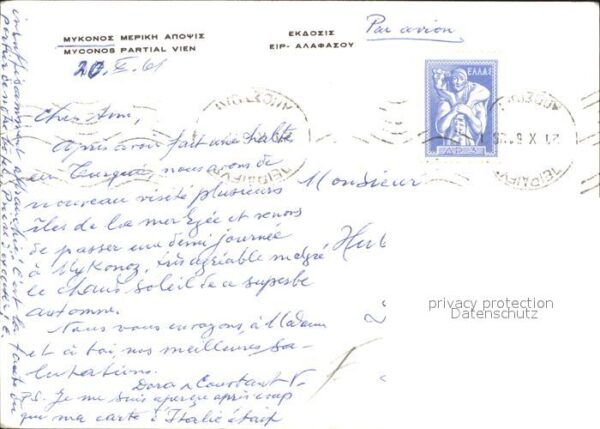 ΜΥΚΟΝΟΣ ΜΕΡΙΚΗ ΑΠΟΨΙΣ
MYCONOS PARTIAL VIEN
ΕΚΔΟΣΙΣ
ΕΙΡ· ΑΛΑΦΑΣΟΥ
Par avion
20.X.61
ΕΛΛΑΣ
21 X 61
Cher Ami,
Après avoir fait une halte
en Turquie, nous avons de
nouveau visité plusieurs
îles de la mer Egée et venons
de passer une demi journée
à Mykonoz, très agréable malgré
le chaud soleil de ce superbe
automne.
Nous vous envoyons, à Madame
et à toi, nos meilleures sa-
lutations.
Dora & Constant
P.S. Je me suis aperçu après coup
que ma carte d'Italie était
insuffisamment affranchie; c'est la faute du
portier de notre hôtel.
Monsieur
Hub
privacy protection
Datenschutz